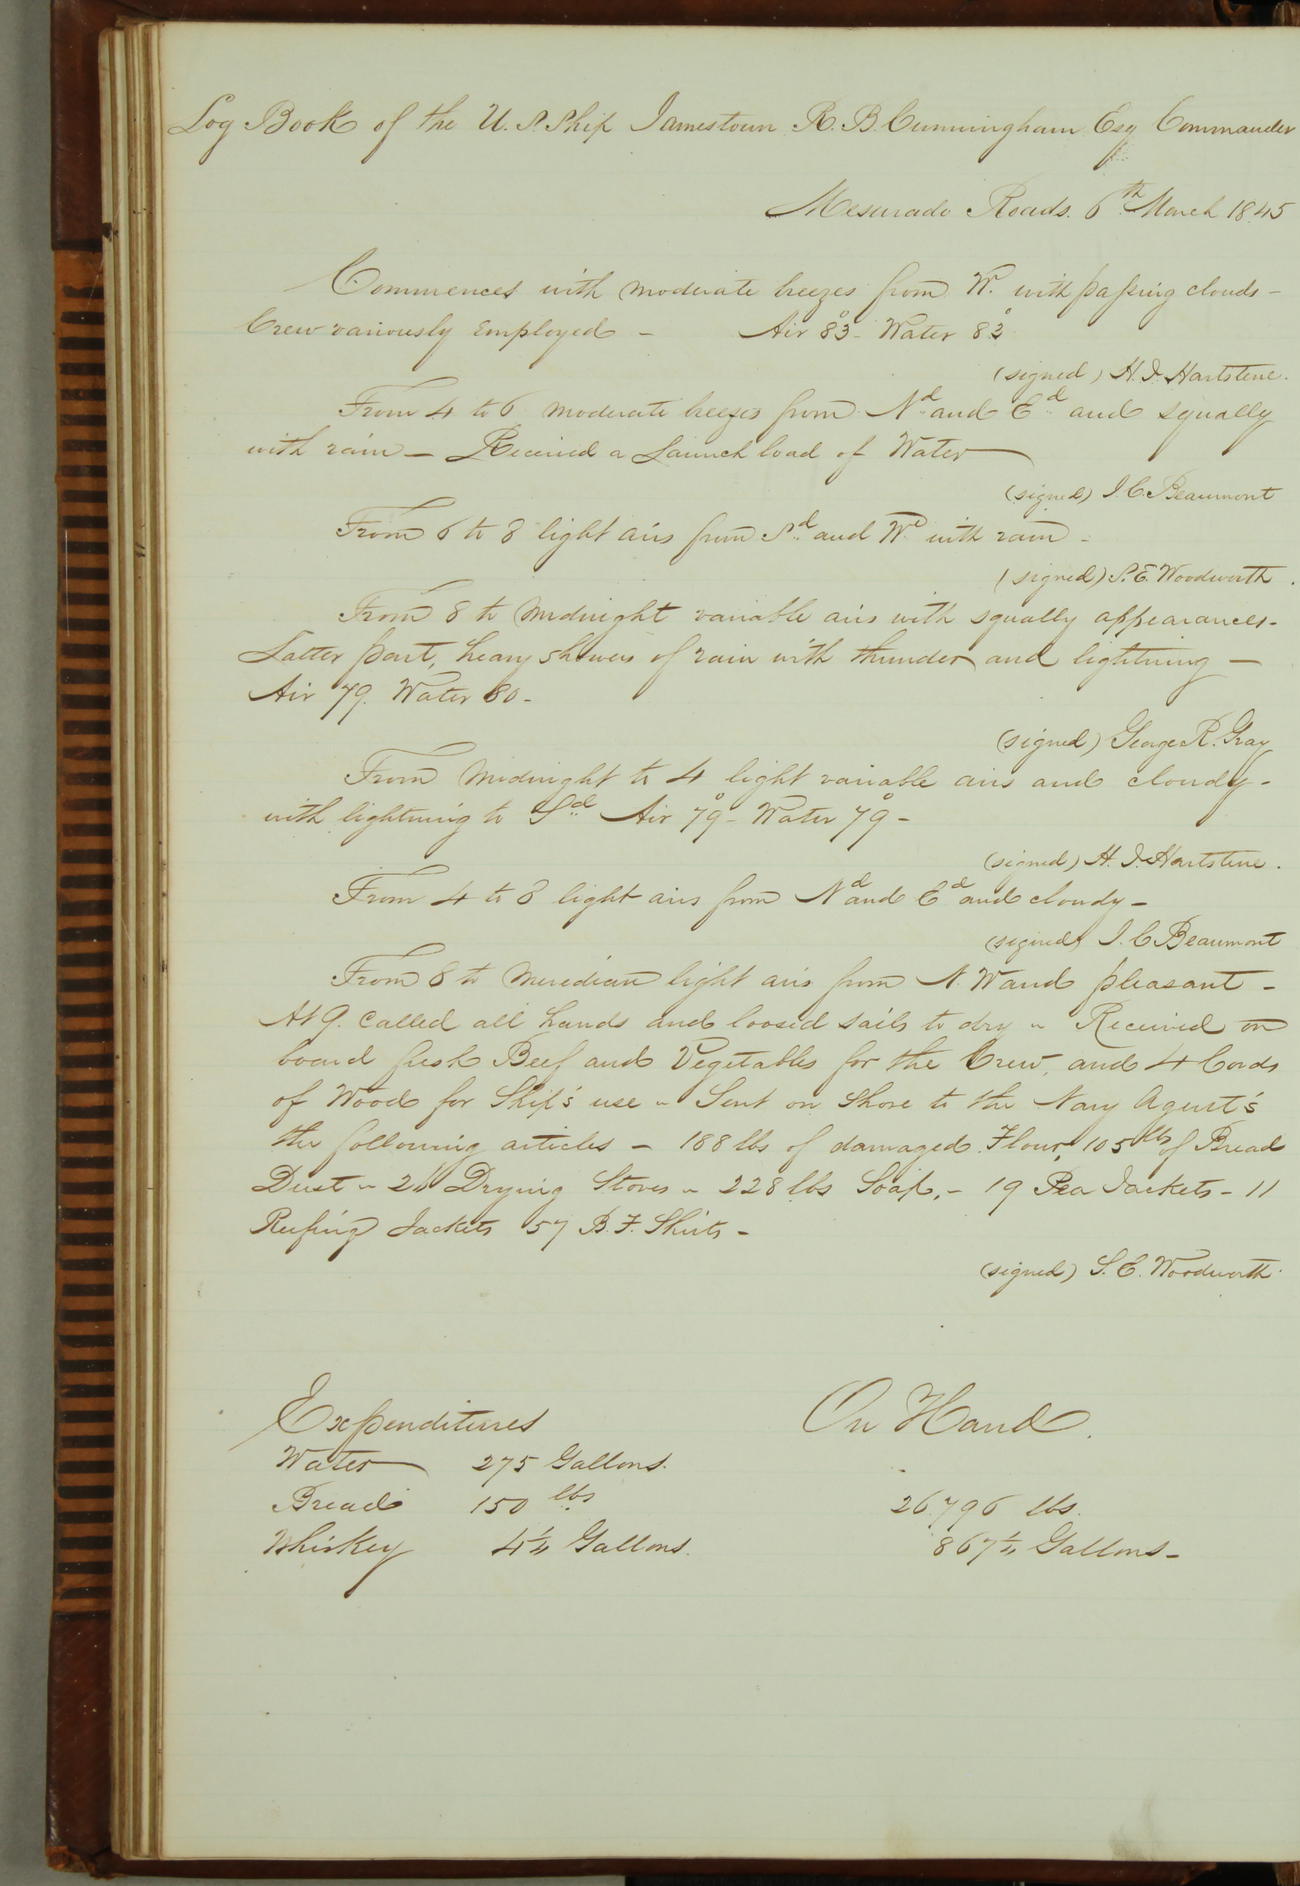 Log Book of the U. S. Ship Jamestown R. B. Cunningham Esq Commander
Mesurado Roads. 6th March 1845
Commences with moderate breezes from W. with passing clouds -
Crew variously employed - Air 83° - Water 83°
(signed) H. I. Hartstene.
From 4 to 6 moderate breezes from Nd and Ed and squally
with rain - Received a Launch load of Water
(signed) I. C. Beaumont
From 6 to 8 light airs from Sd and Wd with rain -
(signed) S. E. Woodworth.
From 8 to Midnight variable airs with squally appearances -
Latter part, heavy showers of rain with thunder and lightning -
Air 79. Water 80 -
(signed) George R. Gray
From Midnight to 4 light variable airs and cloudy -
with lightning to Sd Air 79° - Water 79° -
(signed) H. I. Hartstene.
From 4 to 8 light airs from Nd and Ed and cloudy -
(signed) I. C Beaumont
From 8 to Meridian light airs from N. W and pleasant -
At 9. called all hands and loosed sails to dry - Received on
board fresh Beef and Vegetables for the Crew, and 4 Cords
of Wood for Ship's use - Sent on shore to the Navy Agent's
the following articles - 188 lbs of damaged Flour, 105 lbs of Bread
Dust - 2 Drying Stoves - 228 lbs Soap, - 19 Pea Jackets - 11
Reefing Jackets 57 B. F. Shirts -
(signed) S. E. Woodworth.
Expenditures On Hand.
Water 275 Gallons.
Bread 150 lbs 26.796 lbs.
Whiskey 4 1/4 Gallons. 867 1/4 Gallons -